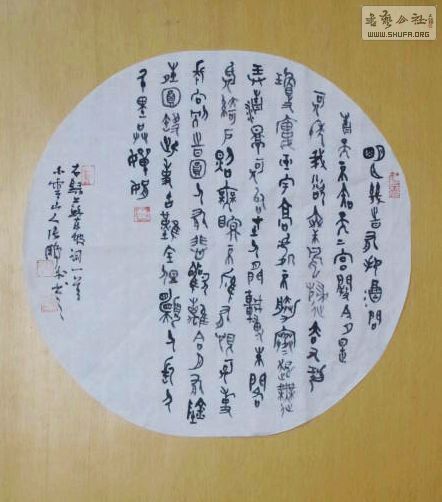 书艺公社
WWW.SHUFA.ORG
明月幾時有把酒問
青天不知天上宮闕今夕是
何年我欲乘風歸去又恐
瓊樓玉宇高處不勝寒起舞
弄清影何似在人間轉朱閣
低綺戶照無眠不應有恨何事
長向別時圓人有悲歡離合月有陰
晴圓缺此事古難全但願人長久
千里共嬋娟
右録蘇軾詞一首
山人